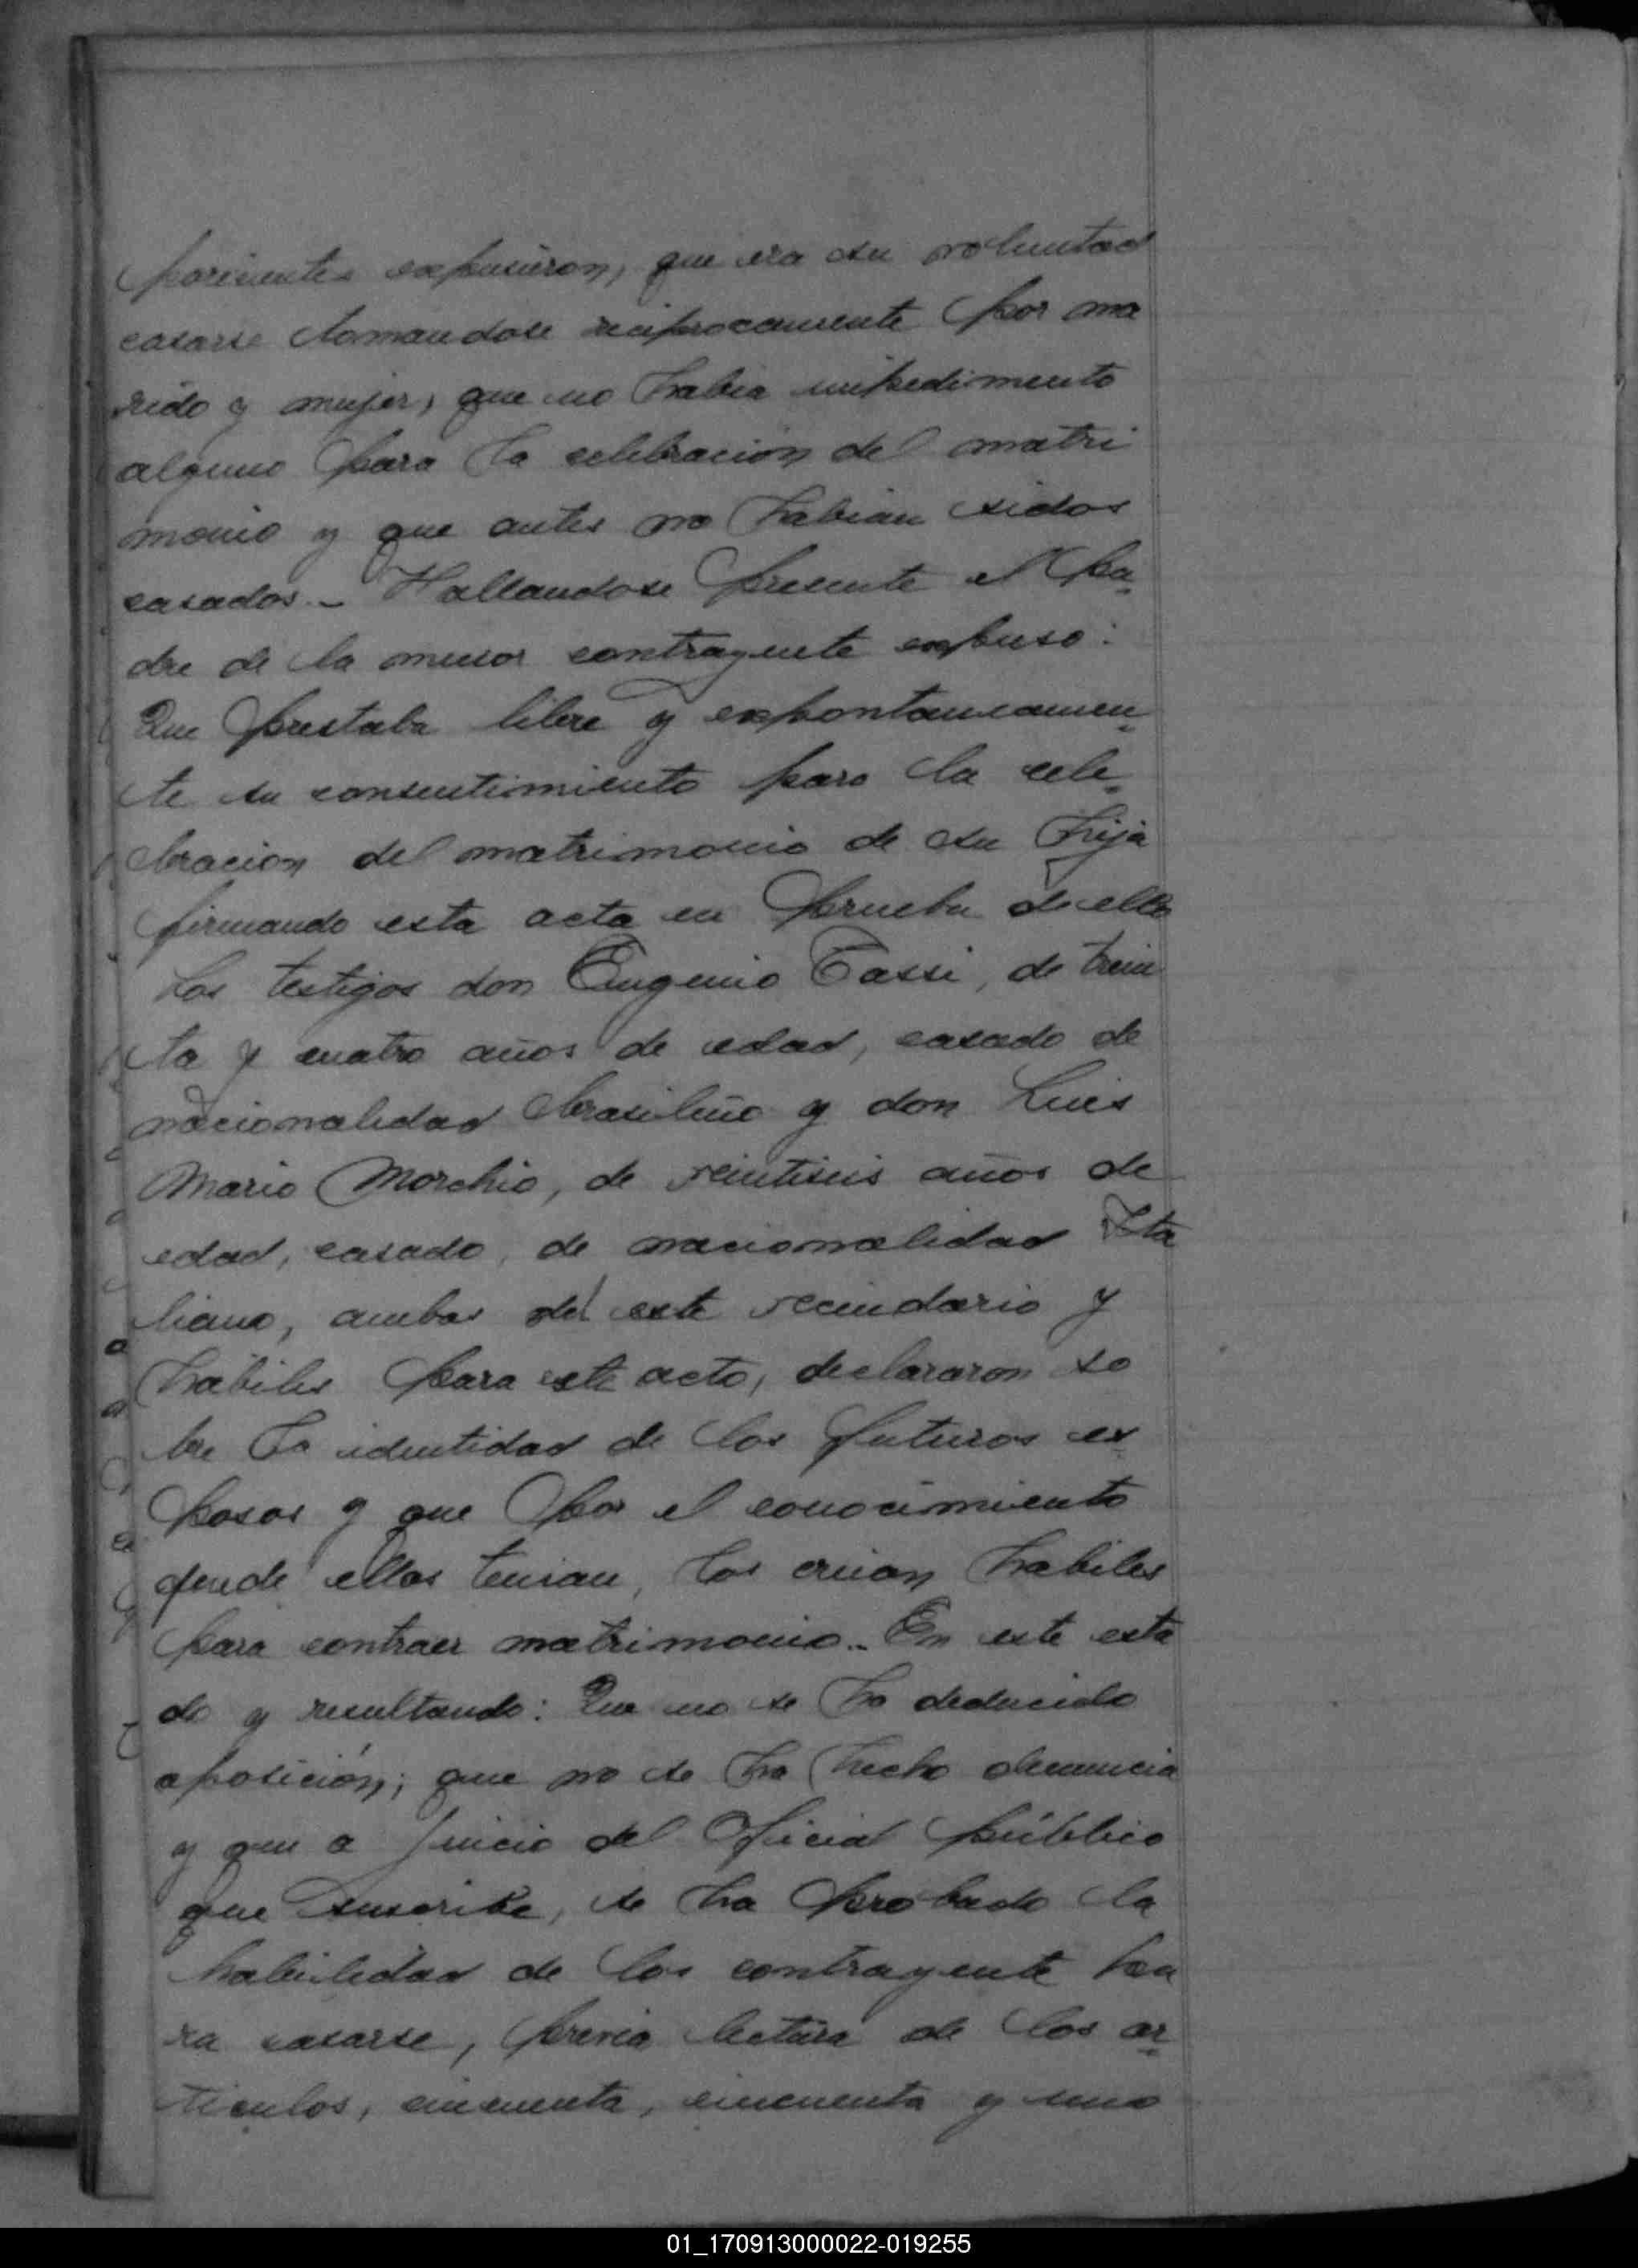 parecientes expusieron, que era su voluntad
casarse tomandose reciprocamente por ma
rido y mujer, que no habia impedimento
alguno para la celebracion del matri
monio y que antes no habian sidos
casados.- Hallandose presente el pa-
dre de la menor contrayente expuso:
Que prestaba libre y expontaneamen-
te su consentimiento para la cele-
bracion del matrimonio de su hija
firmando esta acta en prueba de ello
Los testigos don Eugenio Tassi, de trein
ta y cuatro años de edad, casado de
nacionalidad brasileño y don Luis
Mario Morchio, de veintiseis años de
edad, casado, de nacionalidad Ita
liano, ambos del este vecindario y
habiles para este acto, declararon so
bre la identidad de los futuros es
posos y que por el conocimiento
que de ellos tenian, los creian habiles
para contraer matrimonio.- En este esta
do y resultando: Que no se ha deducido
oposición; que no se ha hecho denuncia
y que a juicio del Oficial público
que suscribe, se ha probado la
habilidad de los contrayente pa
ra casarse, previa lectura de los ar-
ticulos, cincuenta, cincuenta y uno
01_170913000022-019255